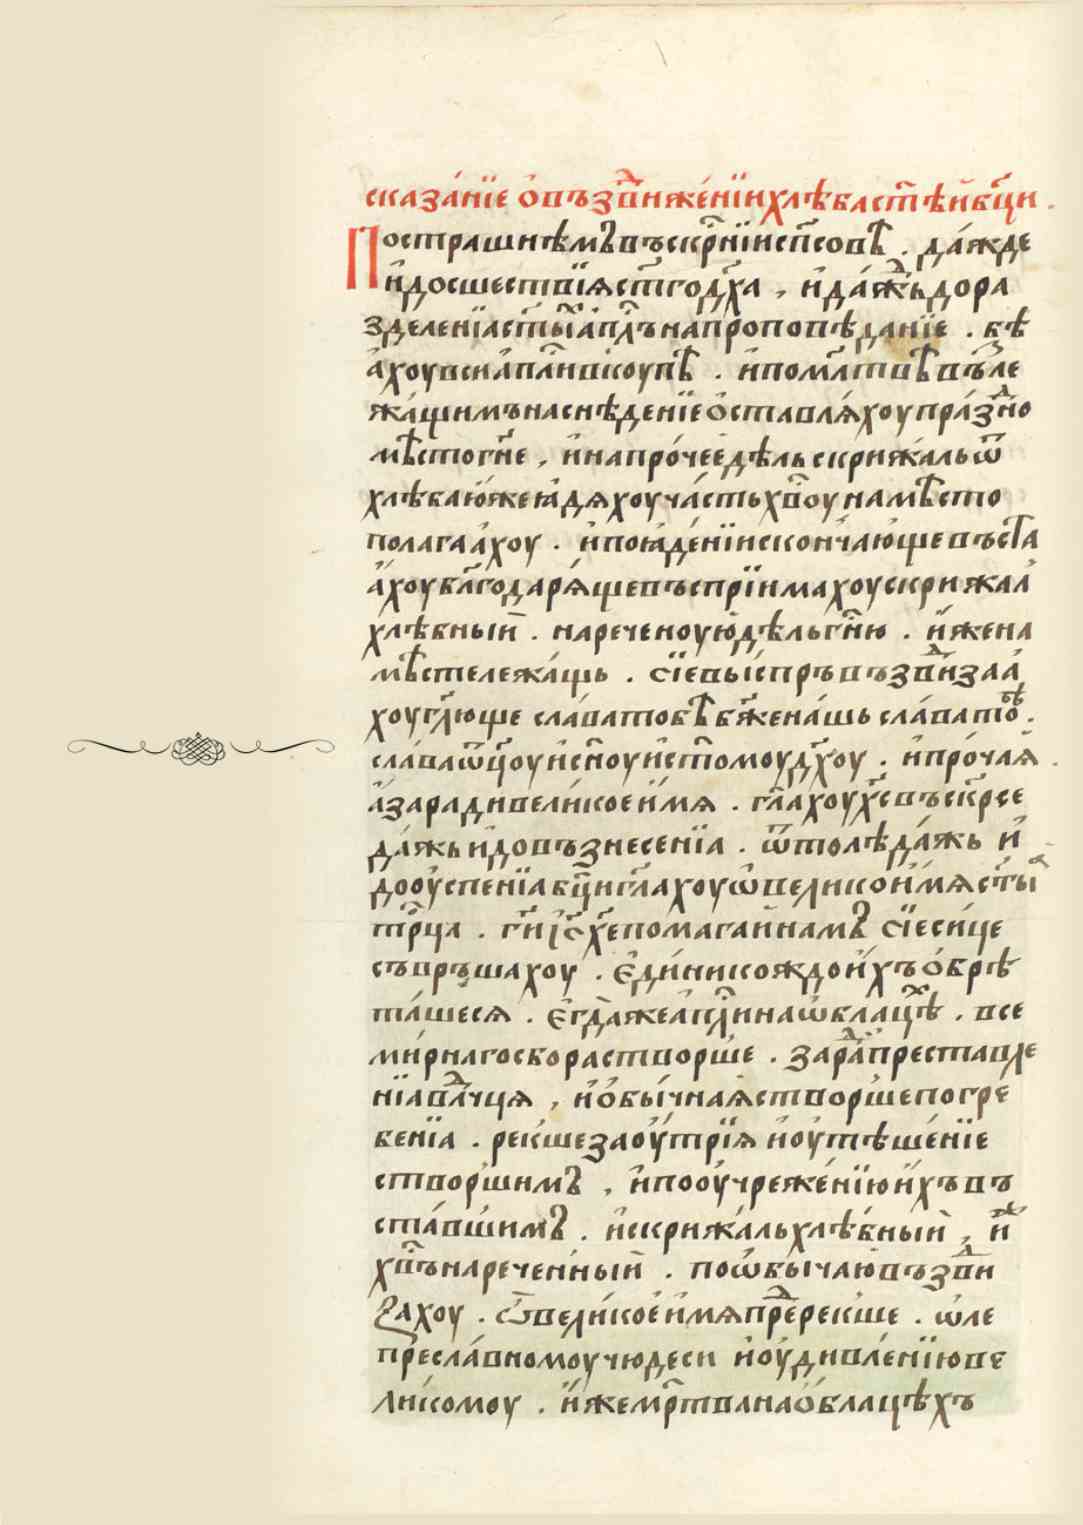 сказа́нїе о҆въздв҃иже́нїи хлѣба ст҃ѣй бц҃и .
По страшнѣмъ въскр҃нїи сп҃совѣ . да́жде
и҆ до сшествїѧ ст҃го дх҃а , и҆ да́жⷣь до ра
зделенїа ст҃ы́ а҆пл҃ъ на проповѣданїе . бѣ
а҆хоу вси а҆пл҃и вкоупѣ . и҆ по мл҃твѣ въꙁле
жа́щимъ на снѣденїе ѻ҆ставлѧ́хоу пра́зⷣно
мѣсто гн҃е , и҆ напро́чее дѣль скрижа́ль ѿ
хлѣба ю҆же ꙗ҆дѧхоу ча́сть хв҃оу на мѣсто
полагаа́хоу . и҆ по ꙗ҆де́нїи сконча́ю҆ще въста
а́хоу бл҃годарѧ́ще въспрїимахоу скрижал
хлѣбный . нареченоую дѣль гн҃ю . и҆́же на
мѣсте лежа́щь . сїе вы́спръ въздв҃иза́а
хоу гл҃юще сла́ва тобѣ бж҃е на́шь сла́ва тоⷠѣ .
сла́ва ѿц҃оу и҆ сн҃оу и҆ ст҃омоу дх҃оу . и҆ про́чаѧ .
а҆ за ра́ди вели́кое и҆́мѧ . гл҃ахоу хс҃ въскр҃се
да́жь и҆ до възнесенїа . ѿтолѣ да́жь и҆
до ᲂу҆спенїа бц҃и гл҃ахоу ѡ҆ велико и҆́мѧ ст҃ы́ѧ
тр҃ца . гн҃и і҆с х҃е помага́й намъ сїе си́це
съвръшахоу . є҆ди́ни ко́ждо и҆́хъ ѻ҆брѣ
та́шесѧ . є҆гда̀ же а҆пл҃и на ѡ҆блацѣⷯ . все
ми́рнаго сбора створше . зараⷣ преставле
нїа влⷣчца , и҆ ѻ҆бы́чнаѧ створ́ше погре
бенїа . реќше за ᲂу҆трїѧ и҆ ᲂу҆тѣше́нїе
створ́шимъ , и҆ по ᲂу҆чреже́нїю и҆́хъ въ
ста́вшимъ . и҆ скрижа́ль хлѣ́бный , и҆ⷤ
хв҃ъ нарече́нный . по ѡ҆бы́чаю въздв҃и
ꙁахоу . ѿ вели́кое и҆́мѧ преⷣреќше . ѡле
пре́сла́вномоу чюдеси и҆ ᲂу҆дивле́нїю ве
ли́комоу . и҆́же мр҃твана ѻ҆́блацѣхъ